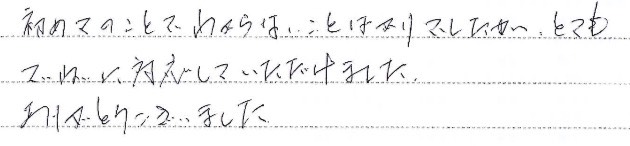 初めてのことでわからないことばかりでしたが、とても
ていねいに対応していただけました。
ありがとうございました